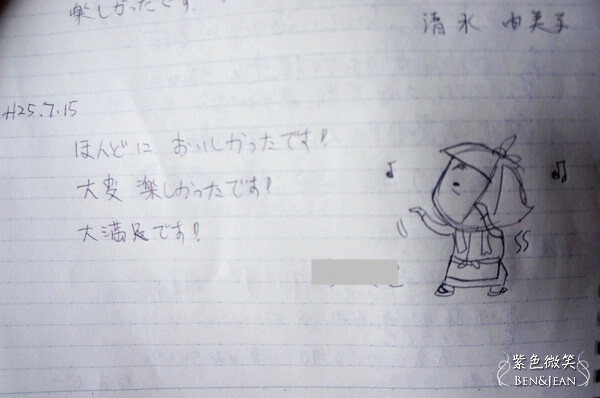 楽しかったです.
清水 由美子
H25.7.15
ほんどに おいしかったです!
大変 楽しかったです!
大満足です!
紫色微笑
BEN&JEAN